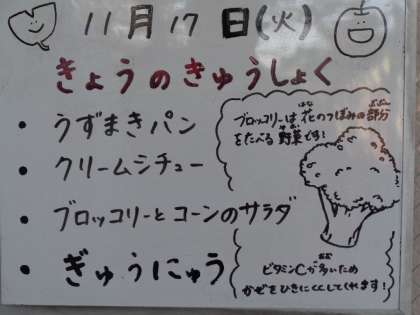 11月17日(火)
きょうのきゅうしょく
• うずまきパン
• クリームシチュー
• ブロッコリーとコーンのサラダ
• ぎゅうにゅう
ブロッコリーは花のつぼみの部分
をたべる野菜です!
ビタミンCが多いため
かぜをひきにくくしてくれます!